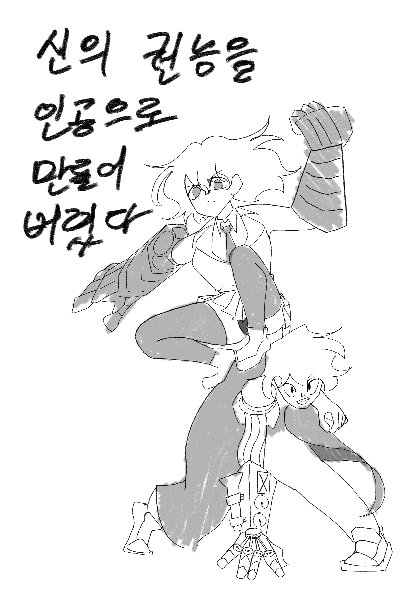 신의 권능을
인공으로
만들어
버렸다